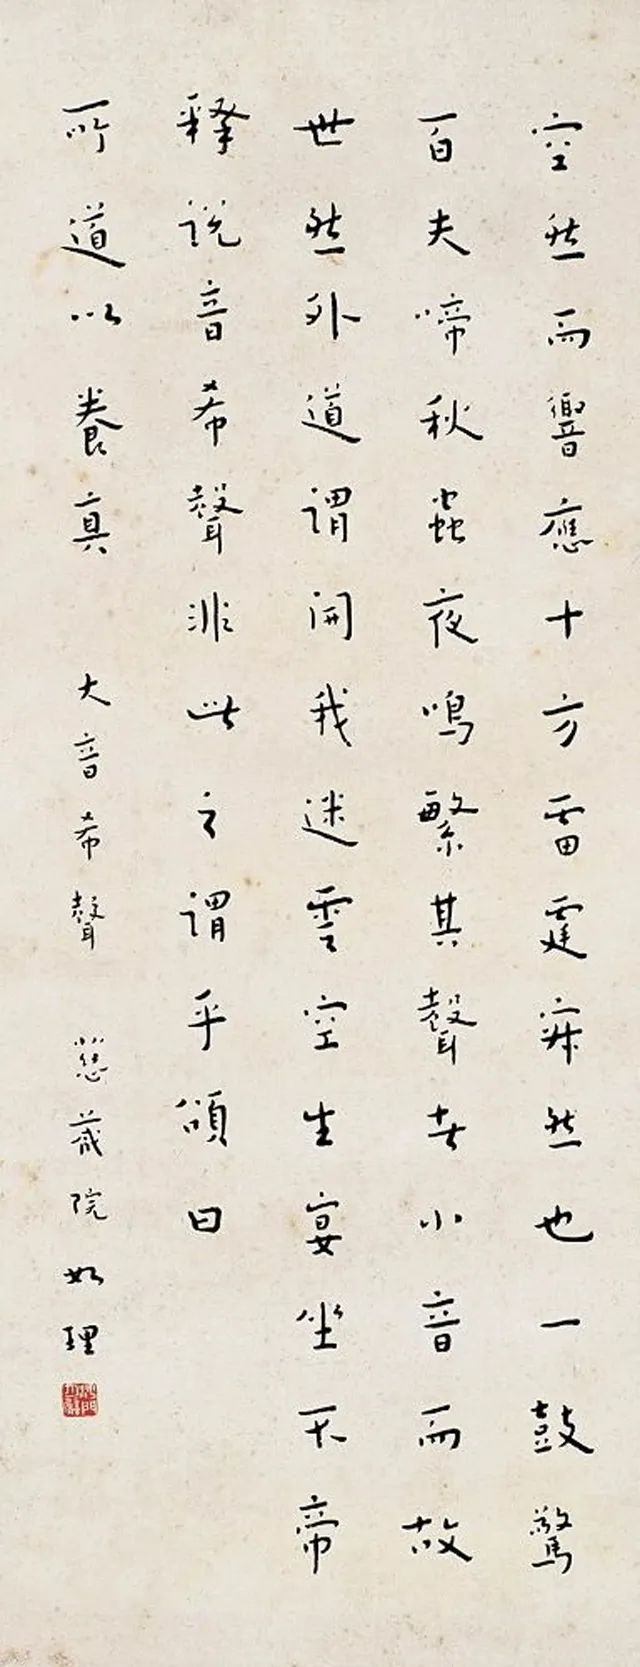 空然而響應十方雷霆寂然也一鼓驚
百夫啼秋蟲夜鳴繫其聲者小音而故
世然外道謂開我迷雲空生宴坐天帝
釋說音希聲非此之謂乎頌曰
一所道以養真
大音希聲 慈藏院如理